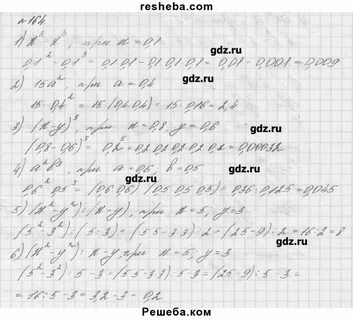 resheba.com
№164
1) x² - x³, при x = 0,1
0,1² - 0,1³ = 0,1·0,1 - 0,1·0,1·0,1 = 0,01 - 0,001 = 0,009
2) 15a², при a = 0,4
15·0,4² = 15·(0,4·0,4) = 15·0,16 = 2,4
3) (x-y)⁵, при x = 0,8, y = 0,6
(0,8-0,6)⁵ = 0,2⁵ = 0,2·0,2·0,2·0,2·0,2 = 0,00032
4) a²b³, при a = 0,6, b = 0,5
0,6²·0,5³ = (0,6·0,6)·(0,5·0,5·0,5) = 0,36·0,125 = 0,045
5) (x²-y²):(x-y), при x = 5, y = 3
(5²-3²):(5-3) = (5·5-3·3):2 = (25-9):2 = 16:2 = 8
6) (x²-y²):x-y при x = 5, y = 3
(5²-3²):5-3 = (5·5-3·3):5-3 = (25-9):5-3 =
= 16:5-3 = 3,2-3 = 0,2
Решеба.ком